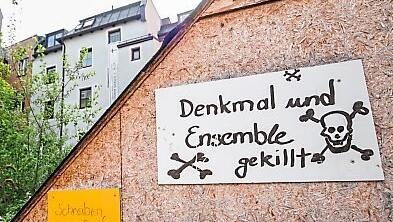 Denkmal und
Ensemble
gekillt
Schrauben